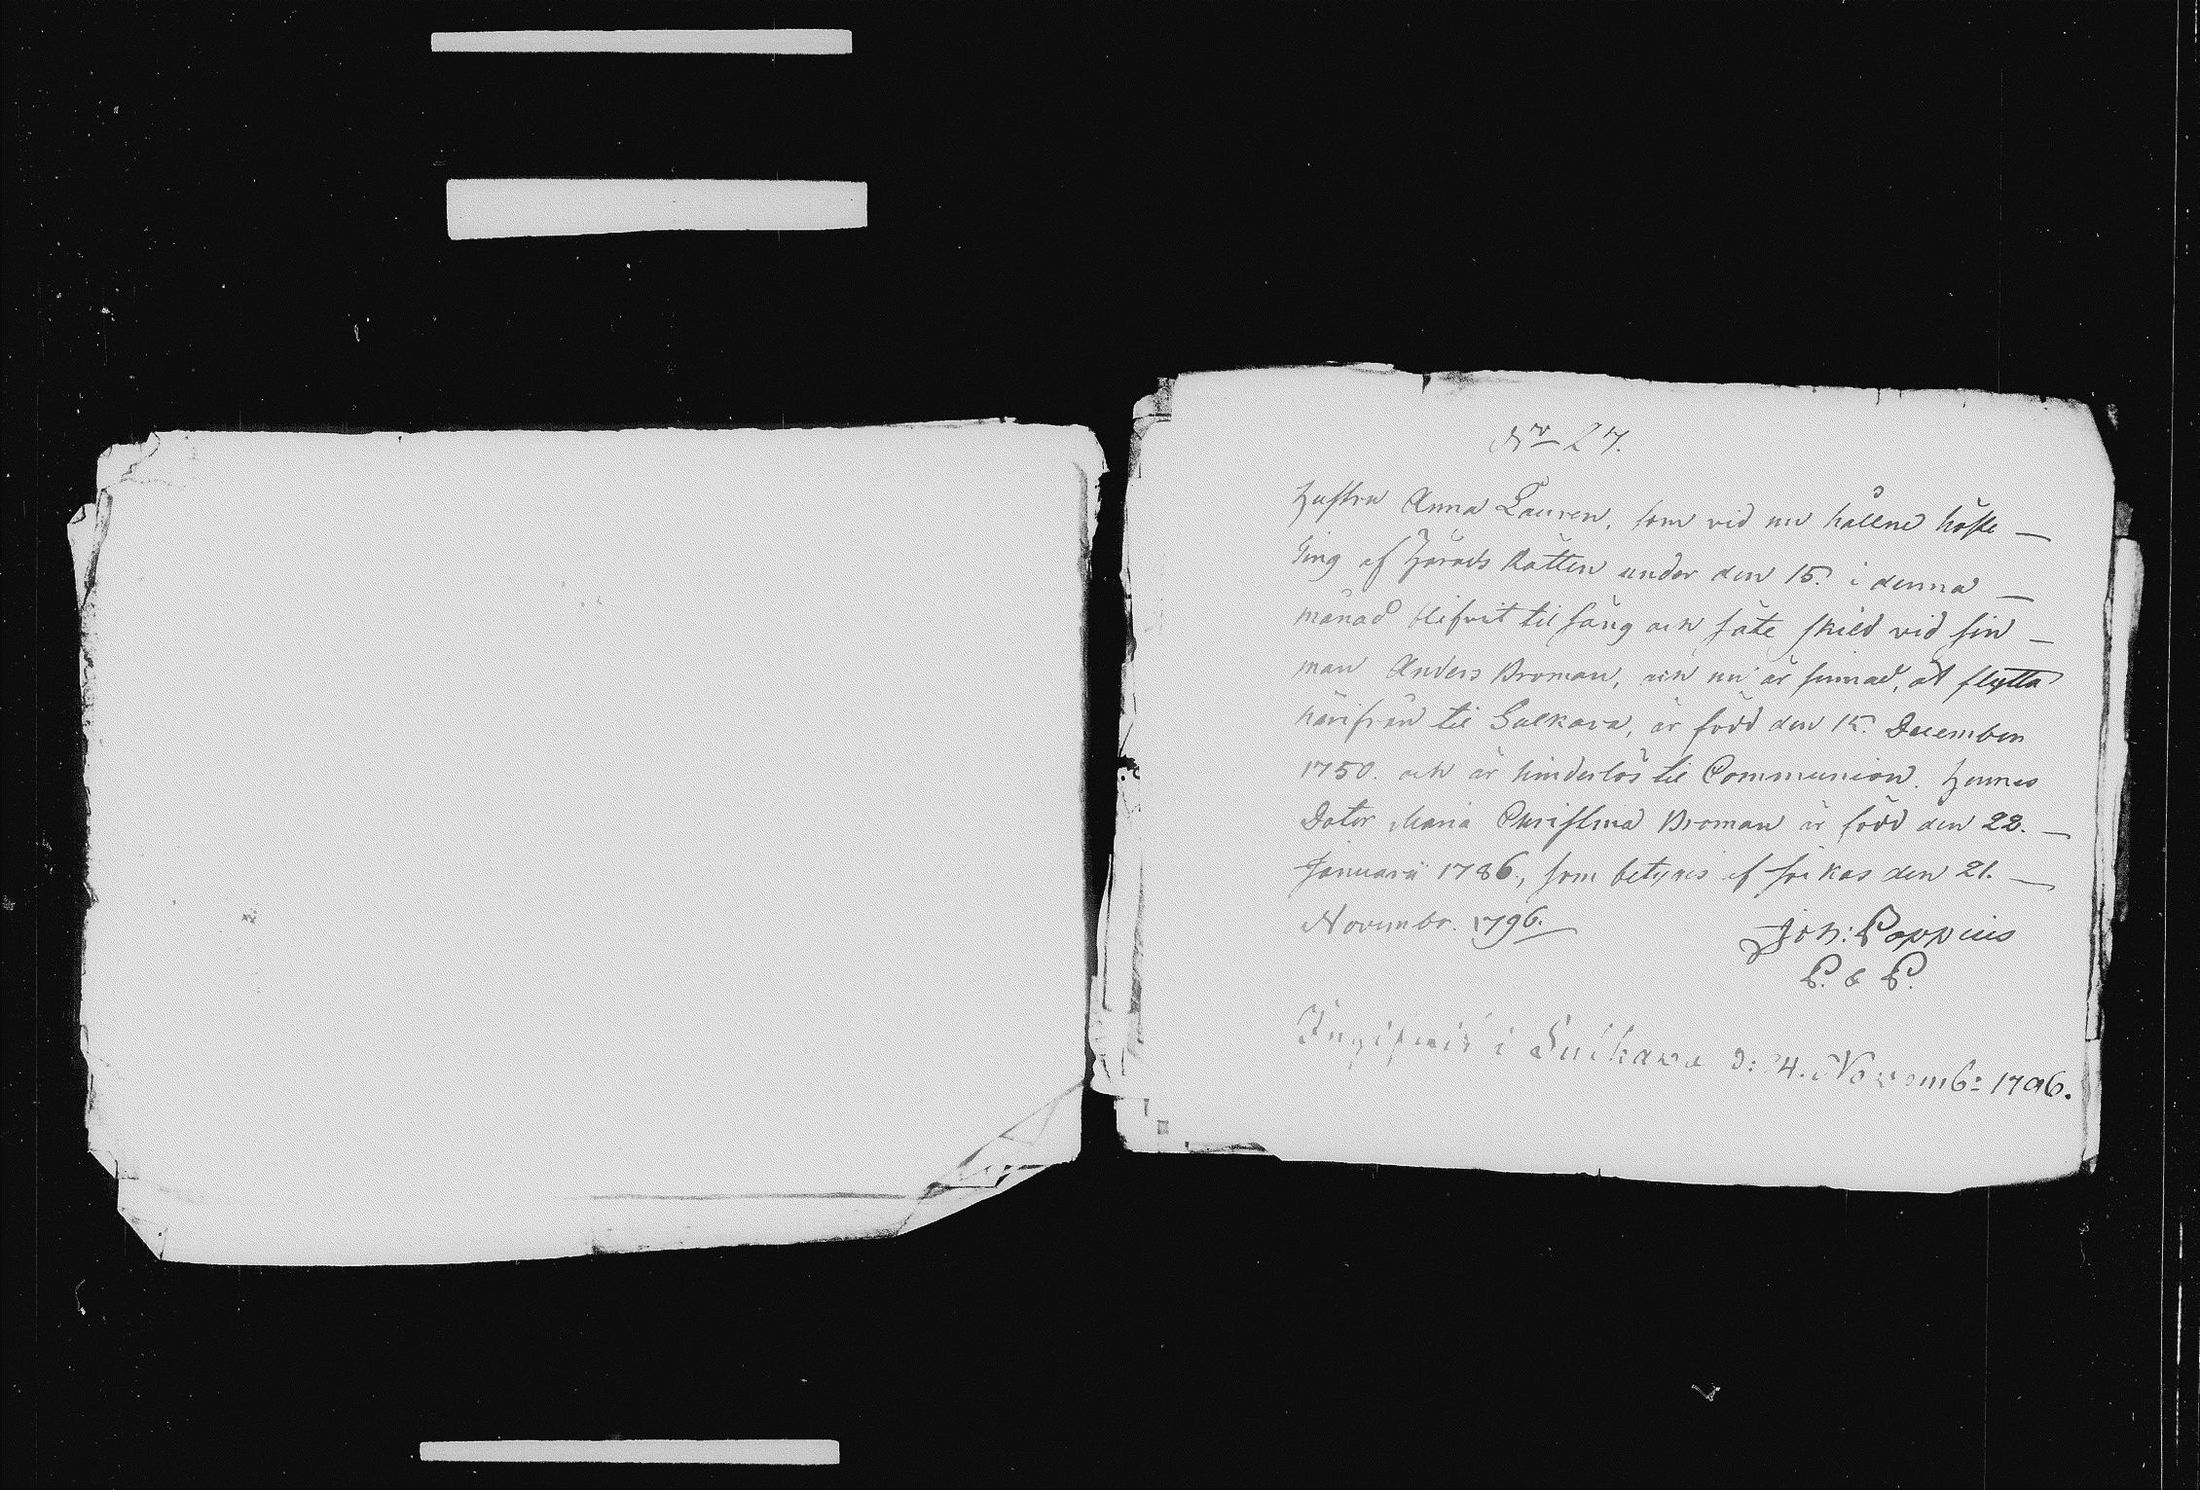 No 27.
Hustru Anna Lauren, som vid nu hållne höste —
ting af Härads Rätten under den 15. i denna —
månad blifvit til säng och säte skild vid sin —
man Anders Broman, och nu är sinnad, at flytta
härifrån til Sulkava, är född den 15. December
1750. och är hinderlös til Communion. Hennes
Doter Maria Christina Broman är född den 22. —
Januarii 1786, som betygas af den 21. —
Novembr. 1796.
Joh: Poppius
P. & P.
i Sulkava d: 24. Novemb: 1796.